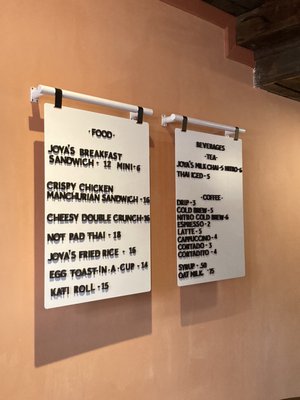 ·FOOD·
JOYA'S BREAKFAST
SANDWICH · 12 MINI · 6
CRISPY CHICKEN
MANCHURIAN SANDWICH · 16
CHEESY DOUBLE CRUNCH · 16
NOT PAD THAI · 18
JOYA'S FRIED RICE · 16
EGG TOAST-IN-A-CUP · 14
KATI ROLL · 15
BEVERAGES
·TEA·
JOYA'S MILK CHAI · 5 NITRO · 6
THAI ICED · 5
·COFFEE·
DRIP · 3
COLD BREW · 5
NITRO COLD BREW · 6
ESPRESSO · 2
LATTE · 5
CAPPUCCINO · 4
CORTADO · 3
CORTADITO · 4
SYRUP · .50
OAT MILK · .75